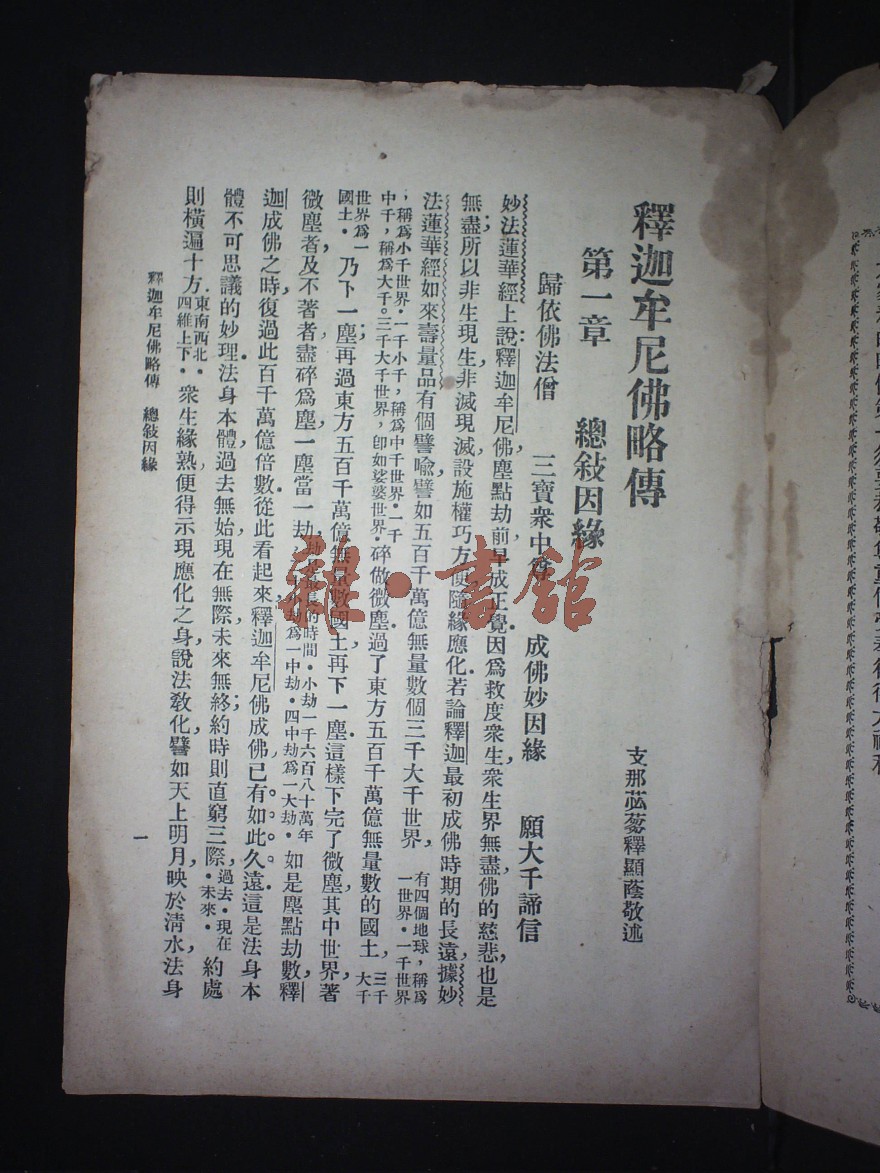 釋迦牟尼佛略傳
支那苾蒭釋顯蔭敬述
第一章　總敍因緣
歸依佛法僧　三寶衆中尊　成佛妙因緣　願大千諦信
妙法蓮華經上說：釋迦牟尼佛塵點劫前，早成正覺。因爲救度衆生，衆生界無盡，佛的慈悲，也是
無盡；所以非生現生，非滅現滅，設施權巧方便，隨緣應化。若論釋迦最初成佛時期的長遠，據妙
法蓮華經如來壽量品有個譬喩，譬如五百千萬億無量數個三千大千世界，有四個地球，稱爲一世界·一千世界
，稱爲小千世界·一千小千，稱爲中千世界·一千中千，稱爲大千。三千大千世界，卽如娑婆世界·碎做微塵，過了東方五百千萬億無量數的國土，三千大千
世界爲一國土·乃下一塵；再過東方五百千萬億無量數國土，再下一塵；這樣下完了微塵，其中世界，著
微塵者，及不著者，盡碎爲塵，一塵當一劫，劫是最長的時間·小劫一千六百八十萬年劫爲一中劫·四中劫爲一大劫·如是塵點劫數，釋
迦成佛之時，復過此百千萬億倍數。從此看起來，釋迦牟尼佛成佛已有如此久遠。這是法身本
體不可思議的妙理。法身本體，過去無始，現在無際，未來無終，約時則直窮三際，過去·現在·未來·約處
則橫遍十方，東南西北·四維上下·衆生緣熟，便得示現應化之身，說法敎化，譬如天上明月，映於清水，法身
釋迦牟尼佛略傳　總敍因緣
一
雜·書館